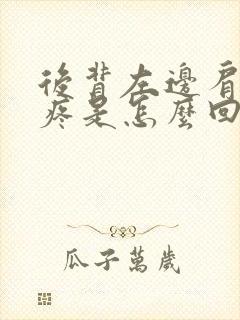 後背左邊肩
疼是怎麼回
瓜子萬歲